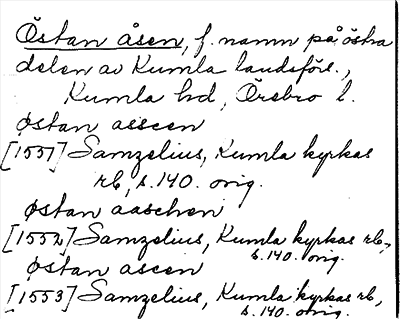 Östan åsen, f. namn på östra
delen av Kumla landsförs.,
Kumla hd, Örebro l.
østan asscen
[1551] Samzelius, Kumla kyrkas
rb, s. 140. orig.
østan aaschen
[1552] Samzelius, Kumla kyrkas rb.,
s. 140. orig.
østan ascen
[1553] Samzelius, Kumla kyrkas rb,
s. 140. orig.